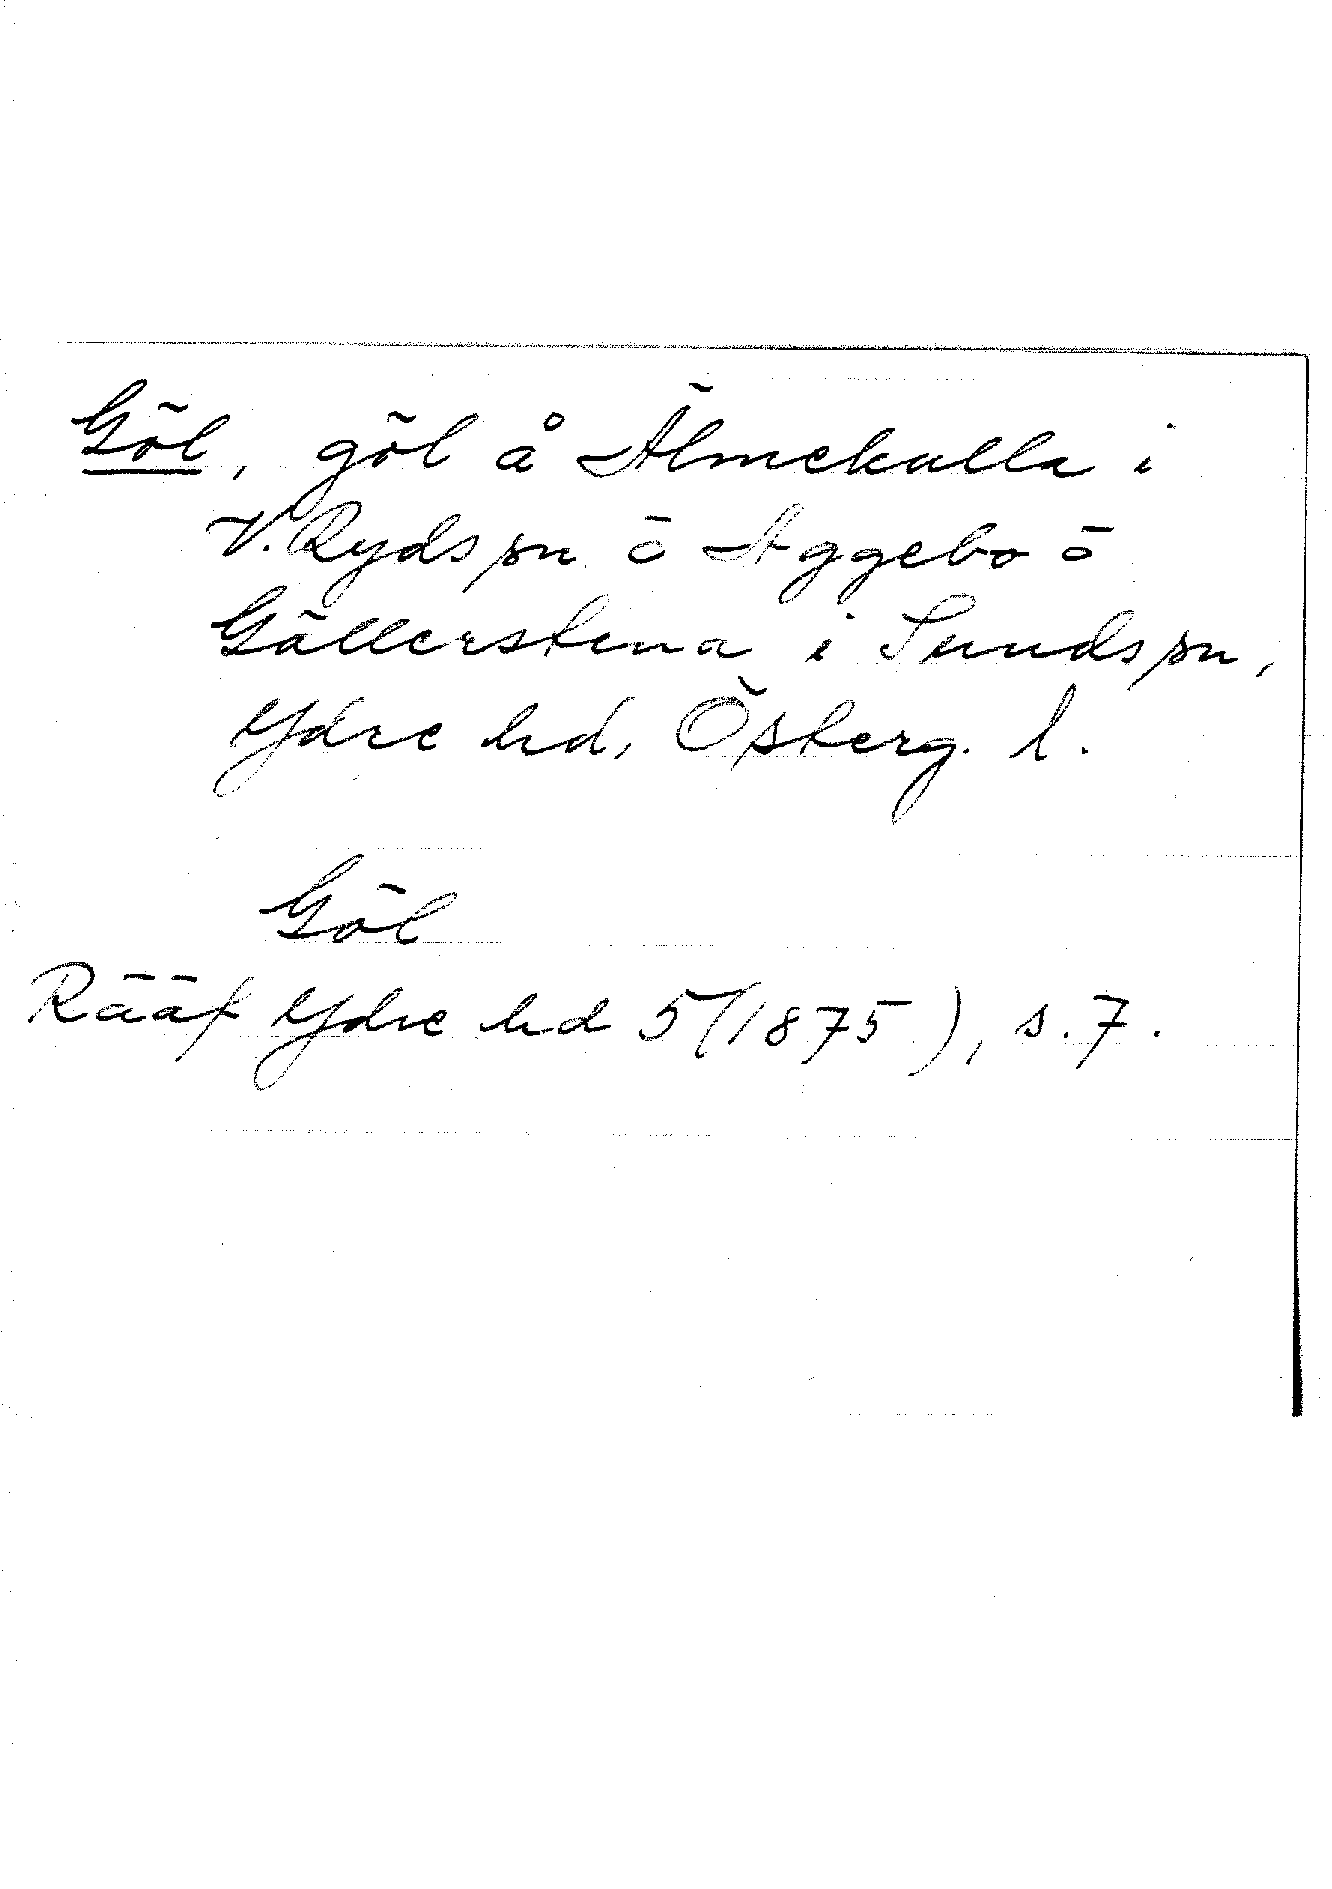 Göl, göl å Älmekulla i
V. Ryds sn ō Aggebo ō
Göllerstena i Sunds sn,
Ydre hd, Österg. l.
Göl
Rääf Ydre hd 5 (1875), s. 7.